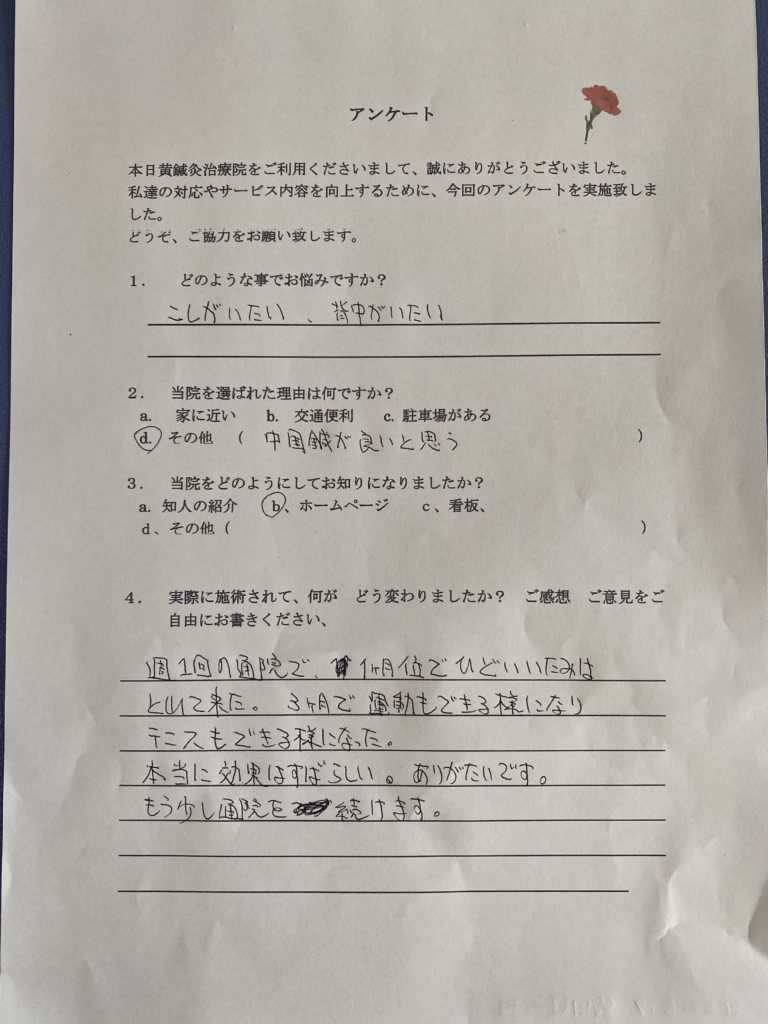 アンケート
本日黄鍼灸治療院をご利用くださいまして、誠にありがとうございました。
私達の対応やサービス内容を向上するために、今回のアンケートを実施致しま
した。
どうぞ、ご協力をお願い致します。
1. どのような事でお悩みですか？
こしがいたい 、背中がいたい
2. 当院を選ばれた理由は何ですか？
a. 家に近い b. 交通便利 c. 駐車場がある
d. その他 ( 中国鍼が良いと思う )
3. 当院をどのようにしてお知りになりましたか？
a. 知人の紹介 b、ホームページ c、看板、
d、その他 ( )
4. 実際に施術されて、何が どう変わりましたか？ ご感想 ご意見をご
自由にお書きください、
週1回の通院で、1ヶ月位でひどいいたみは
とれて来た。3ヶ月で運動もできる様になり
テニスもできる様になった。
本当に効果はすばらしい。ありがたいです。
もう少し通院を続けます。